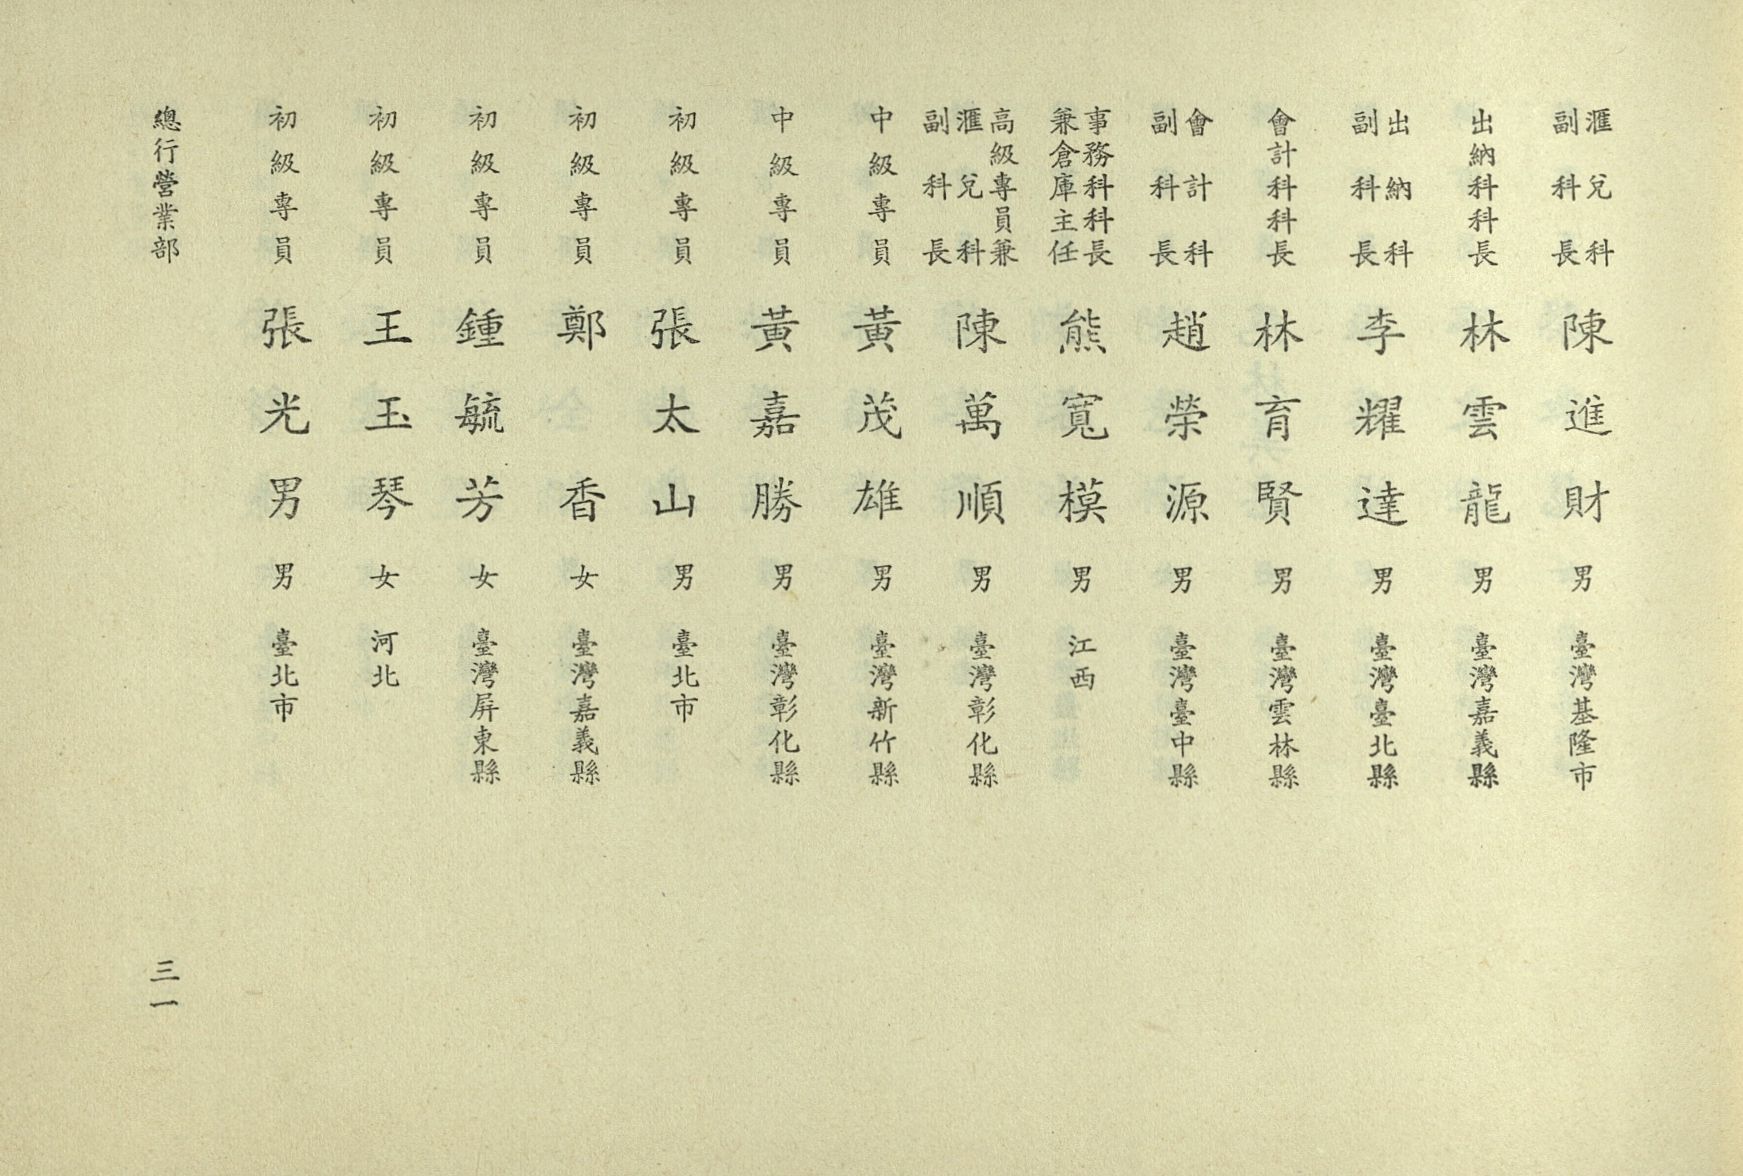 滙兌科副科長 陳進財 男 臺灣基隆市
出納科科長 林雲龍 男 臺灣嘉義縣
出納科副科長 李耀達 男 臺灣臺北縣
會計科科長 林育賢 男 臺灣雲林縣
會計科副科長 趙榮源 男 臺灣臺中縣
事務科科長兼倉庫主任 熊寬模 男 江西
高級專員兼滙兌科副科長 陳萬順 男 臺灣彰化縣
中級專員 黃茂雄 男 臺灣新竹縣
中級專員 黃嘉勝 男 臺灣彰化縣
初級專員 張太山 男 臺北市
初級專員 鄭香 女 臺灣嘉義縣
初級專員 鍾毓芳 女 臺灣屏東縣
初級專員 王玉琴 女 河北
初級專員 張光男 男 臺北市
總行營業部 三一